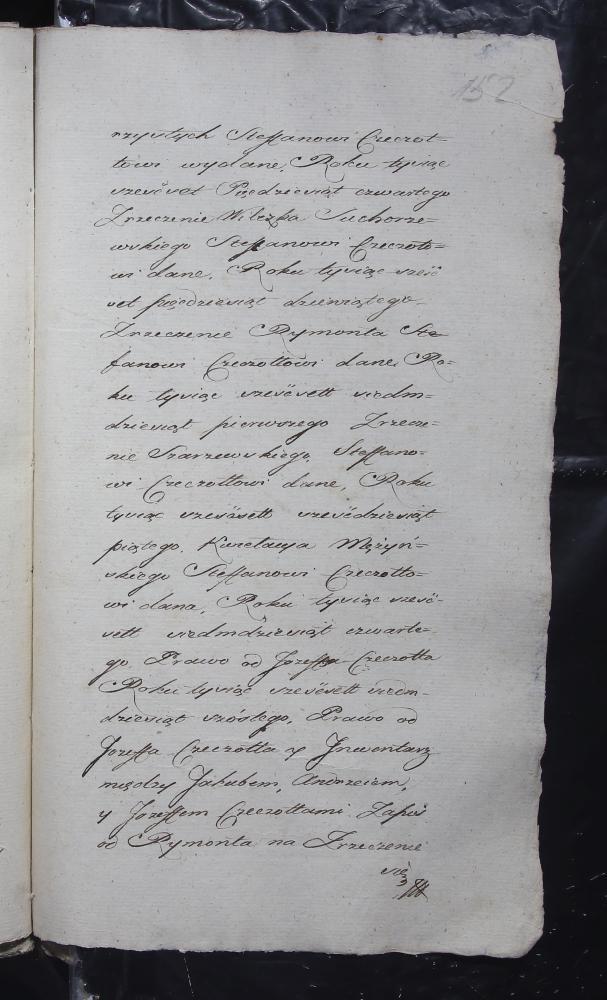 152
rzystych Steffanowi Czeczot-
towi wydane, Roku tysiąc
szesćset Pięćdziesiąt czwartego
Zrzeczenie Wilczka Suchorze-
wskiego Steffanowi Czeczoto-
wi dane, Roku tysiąc sześć
set pięćdziesiąt dziewiątego
Zrzeczenie Rymonta Ste-
fanowi Czeczottowi dane Ro-
ku tysiąc szesćsett siedm-
dziesiąt pierwszego Zrzecze-
nie Szarzewskiego, Steffano-
wi Czeczottowi dane, Roku
tysiąc szesćsett szesćdziesiąt
piątego. Kwietacya Mężyń-
skiego Steffanowi Czeczotto-
wi dana, Roku tysiąc szesć-
sett siedmdziesiąt czwarte-
go, Prawo od Jozeffa Czeczotta
Roku tysiąc szesćsett siedm-
dziesiąt szóstego, Prawo od
Jozeffa Czeczotta y Inwentarz
między Jakubem, Andrzeiem,
y Jozeffem Czeczottami. Zapis
od Rymonta na Zrzeczenie
się